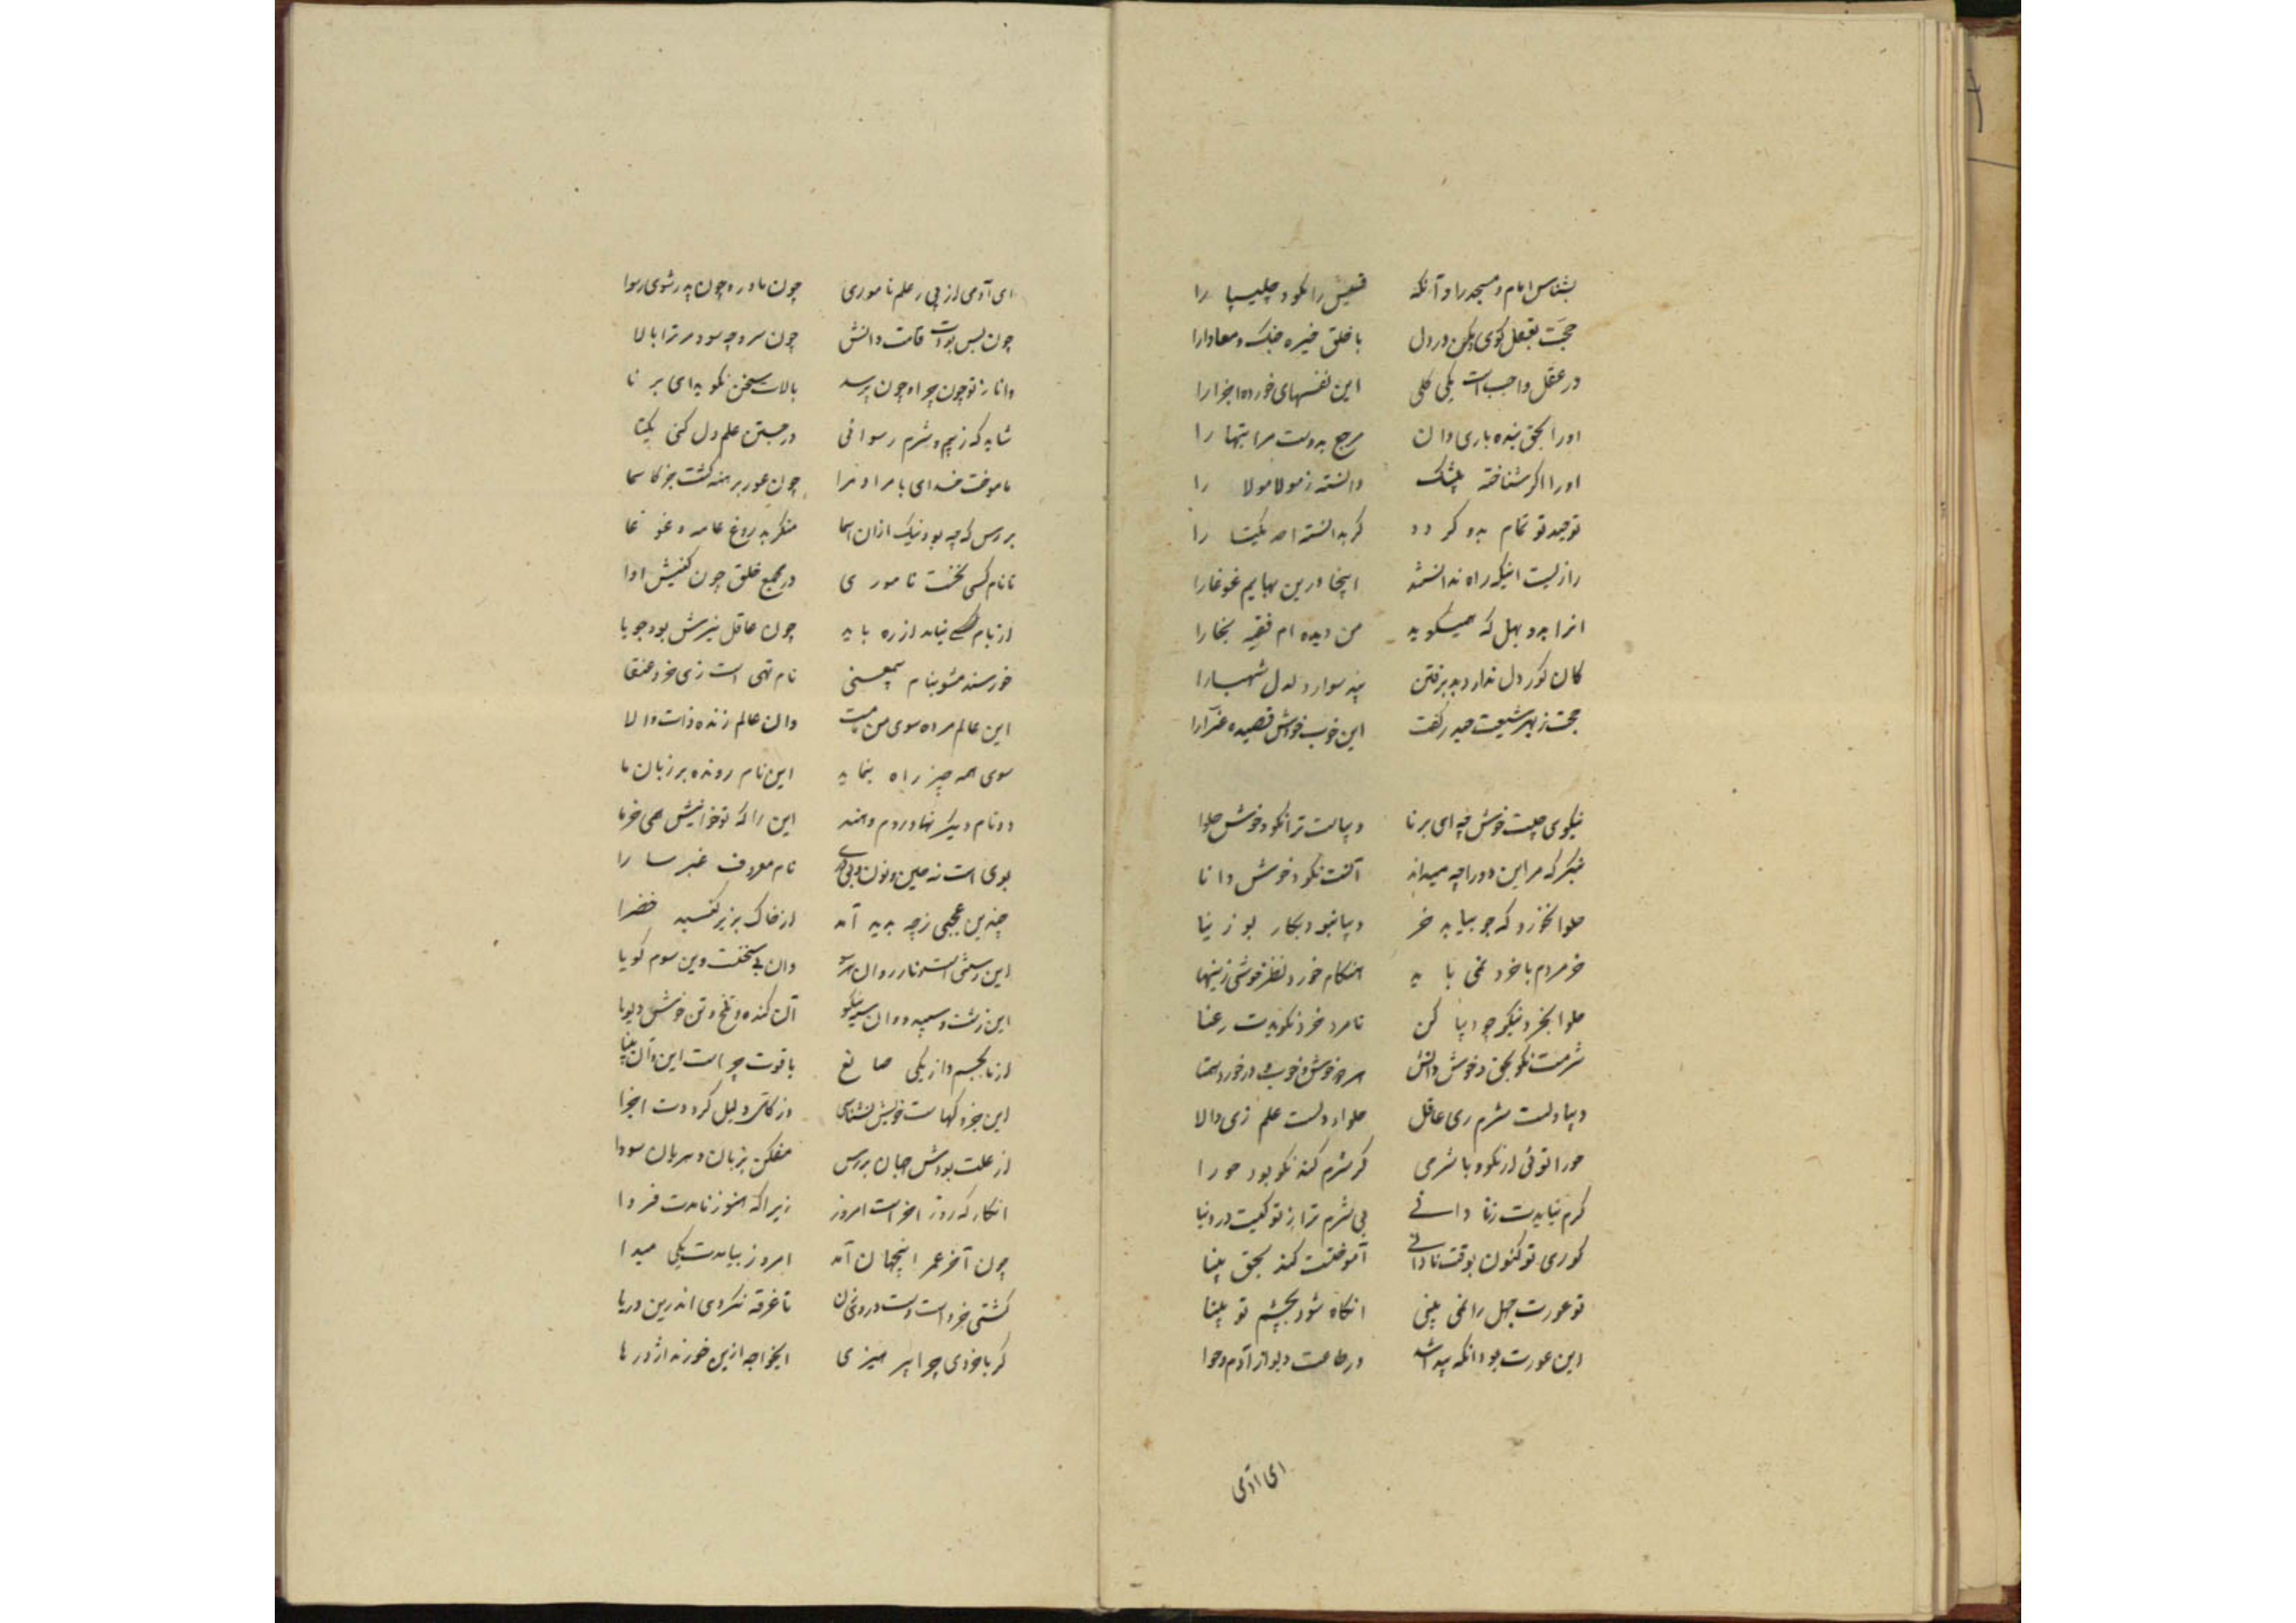 بشناس امام و مسجد را و آنکه قسیس را نکو و چلیپا را
حجت بعقل گوی و مکن در دل با خلق خیره جنک و معادا را
در عقل واجب است یکی کلی این نفسهای خورده اجزا را
او را بحق بنده باری دان مرجع بدوست مرا بتها را
او را اگر شناخته بیشک دانسته ز مولا مولا را
توحید تو تمام بدو گردد گر بدانسته احد یکتا را
رازیست اینکه راه ندانستند اینجا درین بهایم غوغا را
انرا بدو بهل که همیگوید من دیده ام فقیه بخارا
کان کور دل ندارد پذیرفتن پند سوار دلدل شهبا را
حجت ز بهر شیعت حیدر گفت این خوب خوش قصیده غرآرا
نیکوی چیست خوش چه ای برنا دیباست ترا نکو و خوش حلوا
بنگر که مر این دو را چه میداند آنست نکو و خوش دانا
حلوا نخورد که جو بیابد خر دیبا نبود بکار بوزینا
خر مردم با خرد نمی باید هنکام خورد نظر خوشی زینها
حلوا بخرد نیکو چو دیبا کن تا مرد خرد نکویدت رعنا
شرمست نکو بحق و خوش دانش هر دو خوش و خوب و در خور و همتا
دیبا دلست شرم زی عاقل حلوا دلست علم زی والا
حورا توئی ار نکو و با شرمی گر شرم کند نکو بود حورا
گر شرم نیایدت ز نادانی بی شرم تر از تو کیست در دنیا
کوری تو کنون بوقت نادانی آموختنت کند بحق بینا
تو عورت جهل را نمی بینی انکاه شود بچشم تو پیدا
این عورت بود انکه پیدا شد در طاعت دیو از آدم و حوا
ای آدمی
ای آدمی ار بی ز علم ناموری چون مادر و چون پدر شوی رسوا
چون پس بود است قامت دانش چون سرو چه سود مر ترا بالا
دانا ز تو چون چرا و چون پرسد بالات سخن نکوید ای برنا
شاید که ز بیم و شرم رسوائی در جستن علم دل کنی یکتا
ناموخت خدای ما مر آدم را چون عور برهنه گشت جز کاسما
بررس که چه بود نیک ازان اسما منکر بدروغ عامه و غوغا
تا نام کسی نخست ناموزی در مجمع خلق چون کنیش اوا
از نام کسی نیاید از ره باید چون عاقل تیزهش بود جویا
خورسند مشو بنام بیمعنی نام تهی است زی خرد عنقا
این عالم مرده سوی من نامست وان عالم زنده ذات والا
سوی همه چیز راه بنماید این نام رونده بر زبان ما
دو نام دیگر نهاد روم و هند این را که تو خوانیش همی خرما
بوی است نه عین و نون و بی و ری نام معروف عنبر سارا
چندین عجبی ز چه بدید آمد از خاک بزیر گنبد خضرا
این رستنی است و نارروان هر سو وان بی سخنست وین سوم گویا
این زشت و سپید و وان سیه نیکو آن گنده و تلخ و تن خوش و بویا
از یک جسم و از یکی صانع یاقوت چراست این و آن مینا
این جزو کهاست خویش نشناسی وز کلش دلیل کرد دت اجزا
از علت بودش جهان بررس مفکن بزبان دهریان سودا
انکار که روز آخر است امروز زیرا که هنوز نامدت فردا
چون آخر عمر اینجهان آمد امروز بیامدت یکی مبدا
کشتی خرد است دست در وی زن تا غرقه نکردی اندرین دریا
گر با خردی چرا بپرهیزی ایخواجه ازین خورنده اژدرها